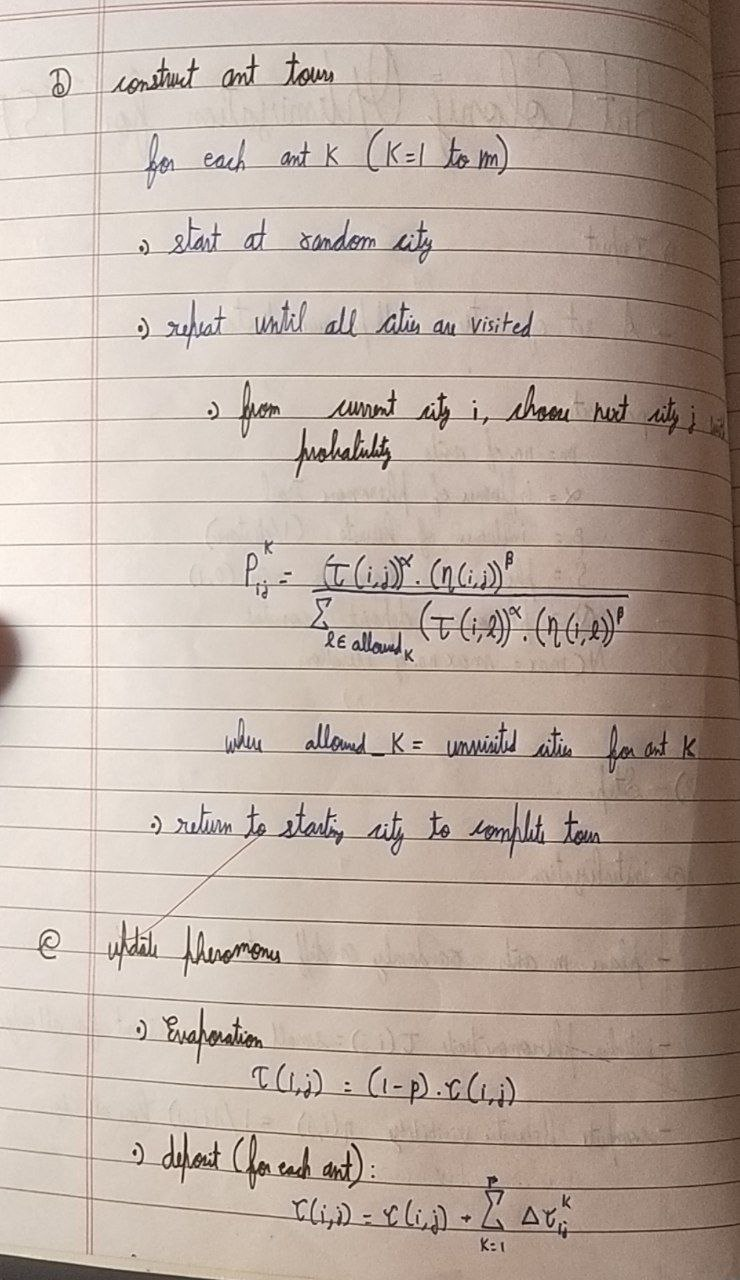 ⓑ construct ant tours
for each ant K (K=1 to m)
•) start at random city
•) repeat until all cities are visited
•) from current city i, choose next city j
probability
P_ij^K = (τ(i,j))^α . (η(i,j))^β / Σ_{l∈ allowed_K} (τ(i,l))^α . (η(i,l))^β
where allowed_K = unvisited cities for ant K
•) return to starting city to complete tour
ⓒ update pheromones
•) Evaporation
τ(i,j) = (1-p) . τ(i,j)
•) deposit (for each ant):
τ(i,j) = τ(i,j) + Σ_{K=1} Δτ_ij^K